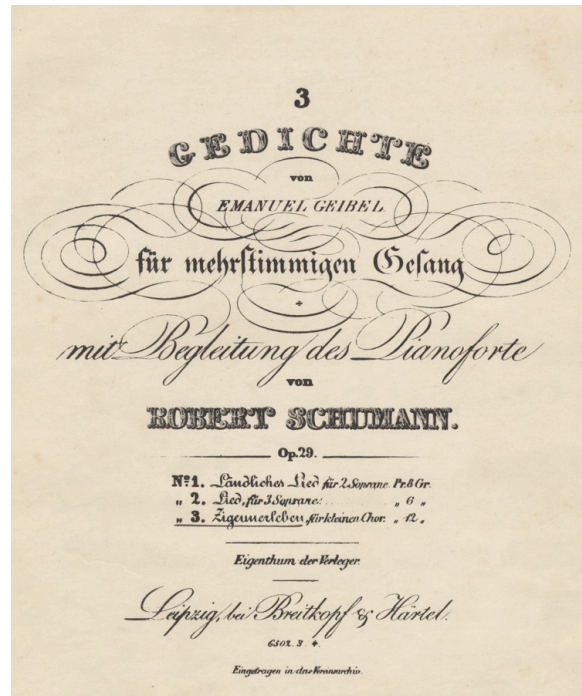 3
GEDICHTE
von
EMANUEL GEIBEL
für mehrstimmigen Gesang
mit Begleitung des Pianoforte
von
ROBERT SCHUMANN.
Op. 29.
Nº 1. Ländliches Lied für 2 Soprane. Pr. 8 Gr.
„ 2. Lied, für 3 Soprane. „ 6 „
„ 3. Zigeunerleben, für kleinen Chor. „ 12 „
Eigenthum der Verleger.
Leipzig, bei Breitkopf & Härtel.
6502. 3. 4.
Eingetragen in das Vereinsarchiv.